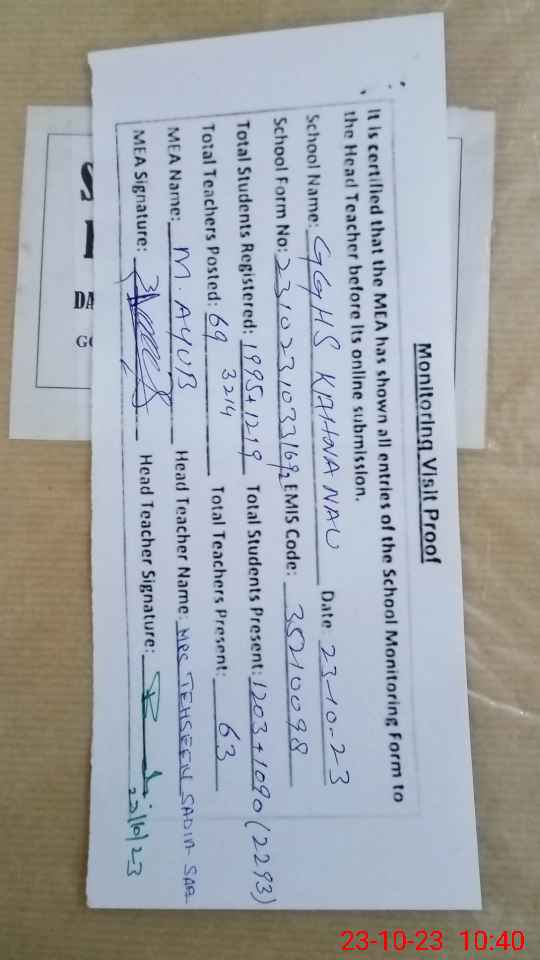 Monitoring Visit Proof
It is certified that the MEA has shown all entries of the School Monitoring Form to
the Head Teacher before its online submission.
School Name: GGHS KAHNA NAU Date: 23-10-23
School Form No: EMIS Code: 35210098
Total Students Registered: 1995+1219 Total Students Present: 1203+1090 (2293)
3214
Total Teachers Posted: 69 Total Teachers Present: 63
MEA Name: M. AYUB Head Teacher Name: MRS TEHSEEN SADIA
MEA Signature: Head Teacher Signature:
DA
GO
23-10-23 10:40